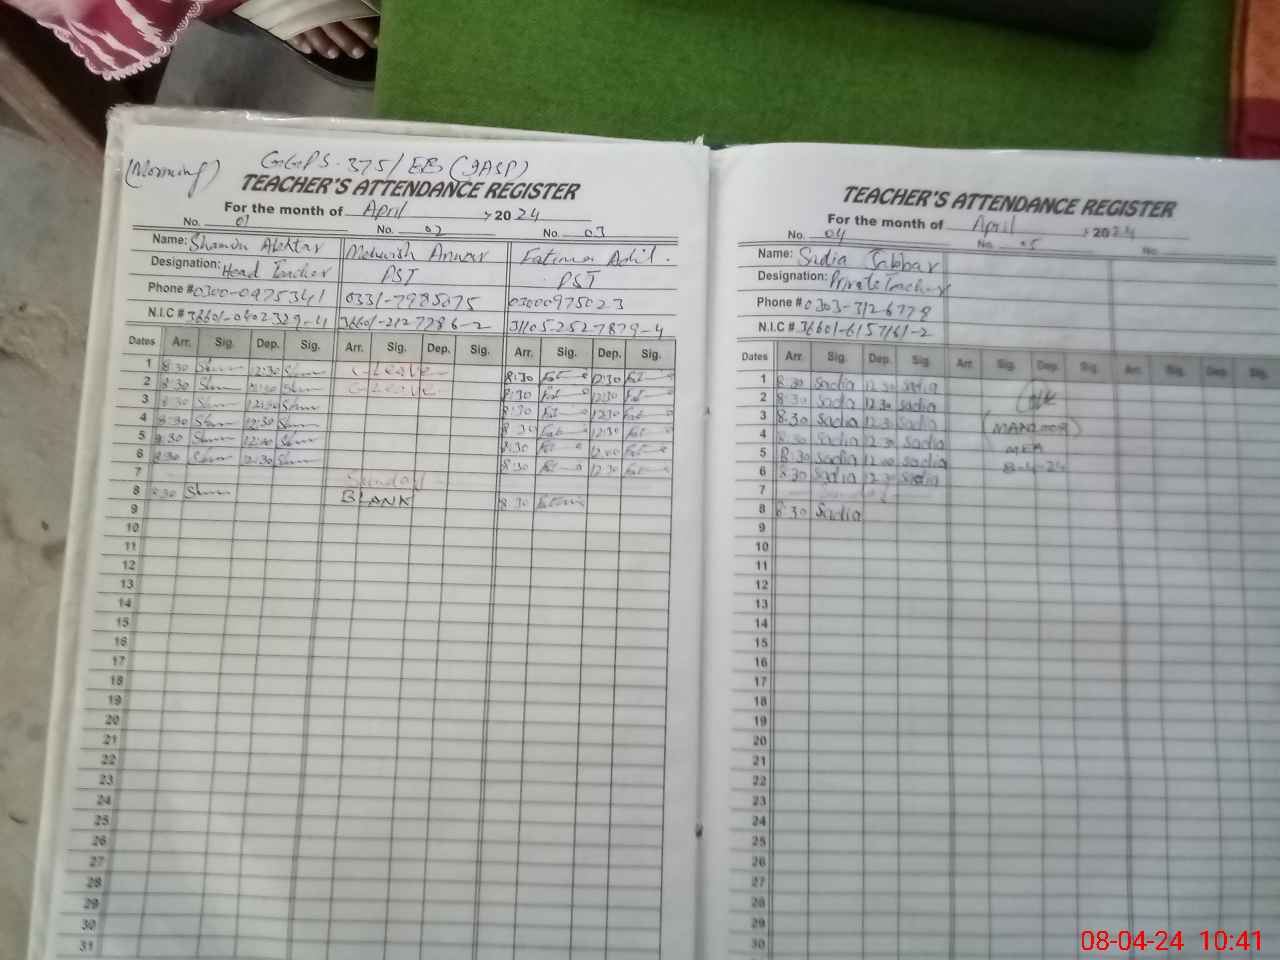 (Morning) GGPS. 375/EB (IASP)
TEACHER'S ATTENDANCE REGISTER
For the month of April 2024
No. 01 No. 02 No. 03
Name: Mehwish Anwar Fatima Adil.
Designation: Head Teacher PST PST
Phone # 0300-0975341 0331-7985075 03000975023
N.I.C #
Dates Arr. Sig. Dep. Sig. Arr. Sig. Dep. Sig. Arr. Sig. Dep. Sig.
1 8:30 12:30 C-Leave 8:30 12:30
2 8:30 12:30 C-Leave 8:30 12:30
3 8:30 12:30 8:30 12:30
4 8:30 12:30 8:30 12:30
5 8:30 12:00 8:30 12:00
6 8:30 12:30 8:30 12:30
7 Sunday
8 8:30 BLANK 8:30
9
10
11
12
13
14
15
16
17
18
19
20
21
22
23
24
25
26
27
28
29
30
31
TEACHER'S ATTENDANCE REGISTER
For the month of April 2024
No. 04 No. 05 No.
Name: Sadia Jabbar
Designation: Private Teacher
Phone # 0303-3126778
N.I.C # 36601-6157161-2
Dates Arr. Sig. Dep. Sig. Arr. Sig. Dep. Sig. Arr. Sig. Dep. Sig.
1 8:30 Sadia 12:30 Sadia
2 8:30 Sadia 12:30 Sadia
3 8:30 Sadia 12:30 Sadia (MANZOOR)
4 8:30 Sadia 12:30 Sadia MEA
5 8:30 Sadia 12:00 Sadia 8-4-24
6 8:30 Sadia 12:30 Sadia
7 Sunday
8 8:30 Sadia
9
10
11
12
13
14
15
16
17
18
19
20
21
22
23
24
25
26
27
28
29
30
08-04-24 10:41